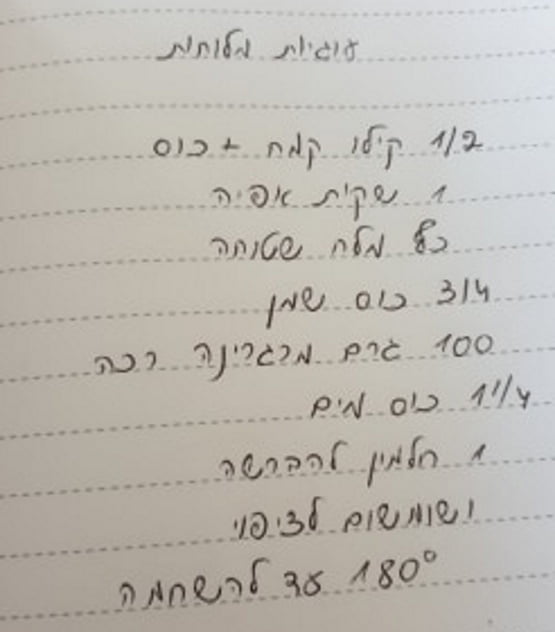 עוגיות מלוחות
1/2 קילו קמח + כוס
1 שקית אפיה
כף מלח שטוחה
3/4 כוס שמן
100 גרם מרגרינה רכה
1 1/4 כוס מים
1 חלמון להברשה
ושומשום לציפוי
180° עד להשחמה